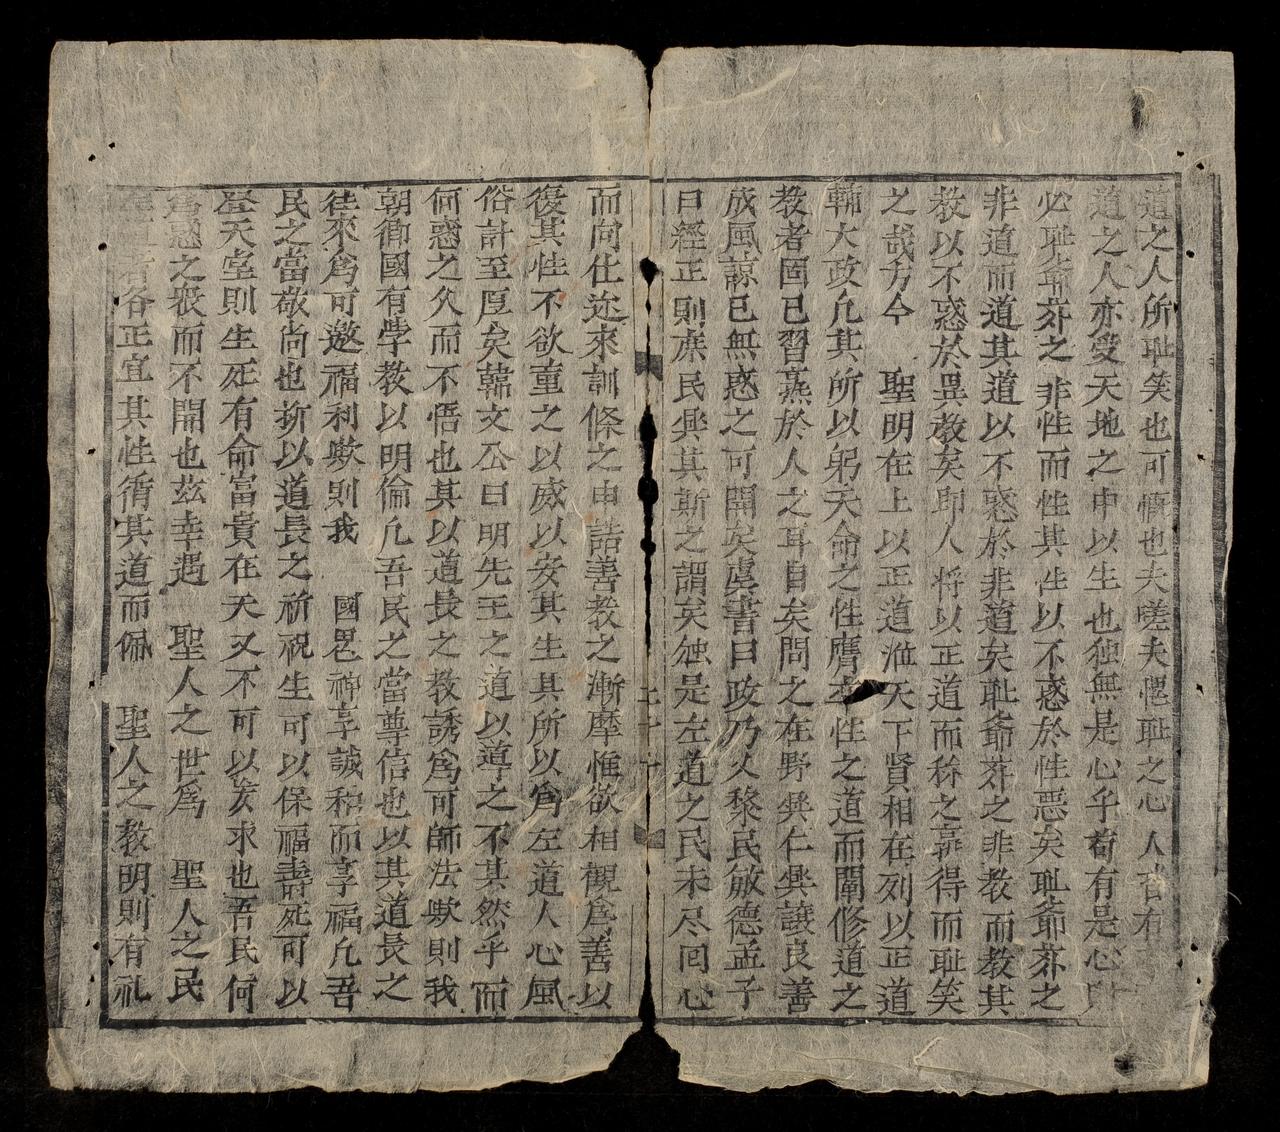 道之人所耻笑也可慨也夫嗟夫愧耻之心人皆有
道之人亦受天地之中以生也独無是心乎苟有是心則
必耻爺茶之非性而性其性以不惑於性惡矣耻爺茶之
非道而道其道以不惑於非道矣耻爺茶之非教而教其
教以不惑於異教矣即人将以正道而称之豪得而耻笑
之哉方今　聖明在上以正道涖天下賢相在列以正道
輔大政凢其所以躬天命之性膺率性之道而闡修道之
教者固已習熹於人之耳目矣問之在野興仁興譲良善
成風諒已無惑之可開矣虞書曰政乃乂黎民敏德孟子
曰經正則庶民興其斯之謂矣独是左道之民未尽囘心
而尚仕近來訓條之申誥善教之漸摩惟欲相觀爲善以
復其性不欲董之以威以安其生其所以爲左道人心風
俗計至厚矣韓文公曰明先王之道以導之不其然乎而
何惑之久而不悟也其以道長之教誘爲可師法歟則我
朝衛國有学教以明倫凢吾民之當尊信也以其道長之
往來爲可邀福利歟則我　國恩神享誠和而享福凢吾
民之當敬尚也抑以道長之祈祝生可以保福壽死可以
登天堂則生死有命富貴在天又不可以妄求也吾民何
爲惑之衆而不開也茲幸遇　聖人之世爲　聖人之民
道者各正宜其性循其道而佩　聖人之教明則有礼